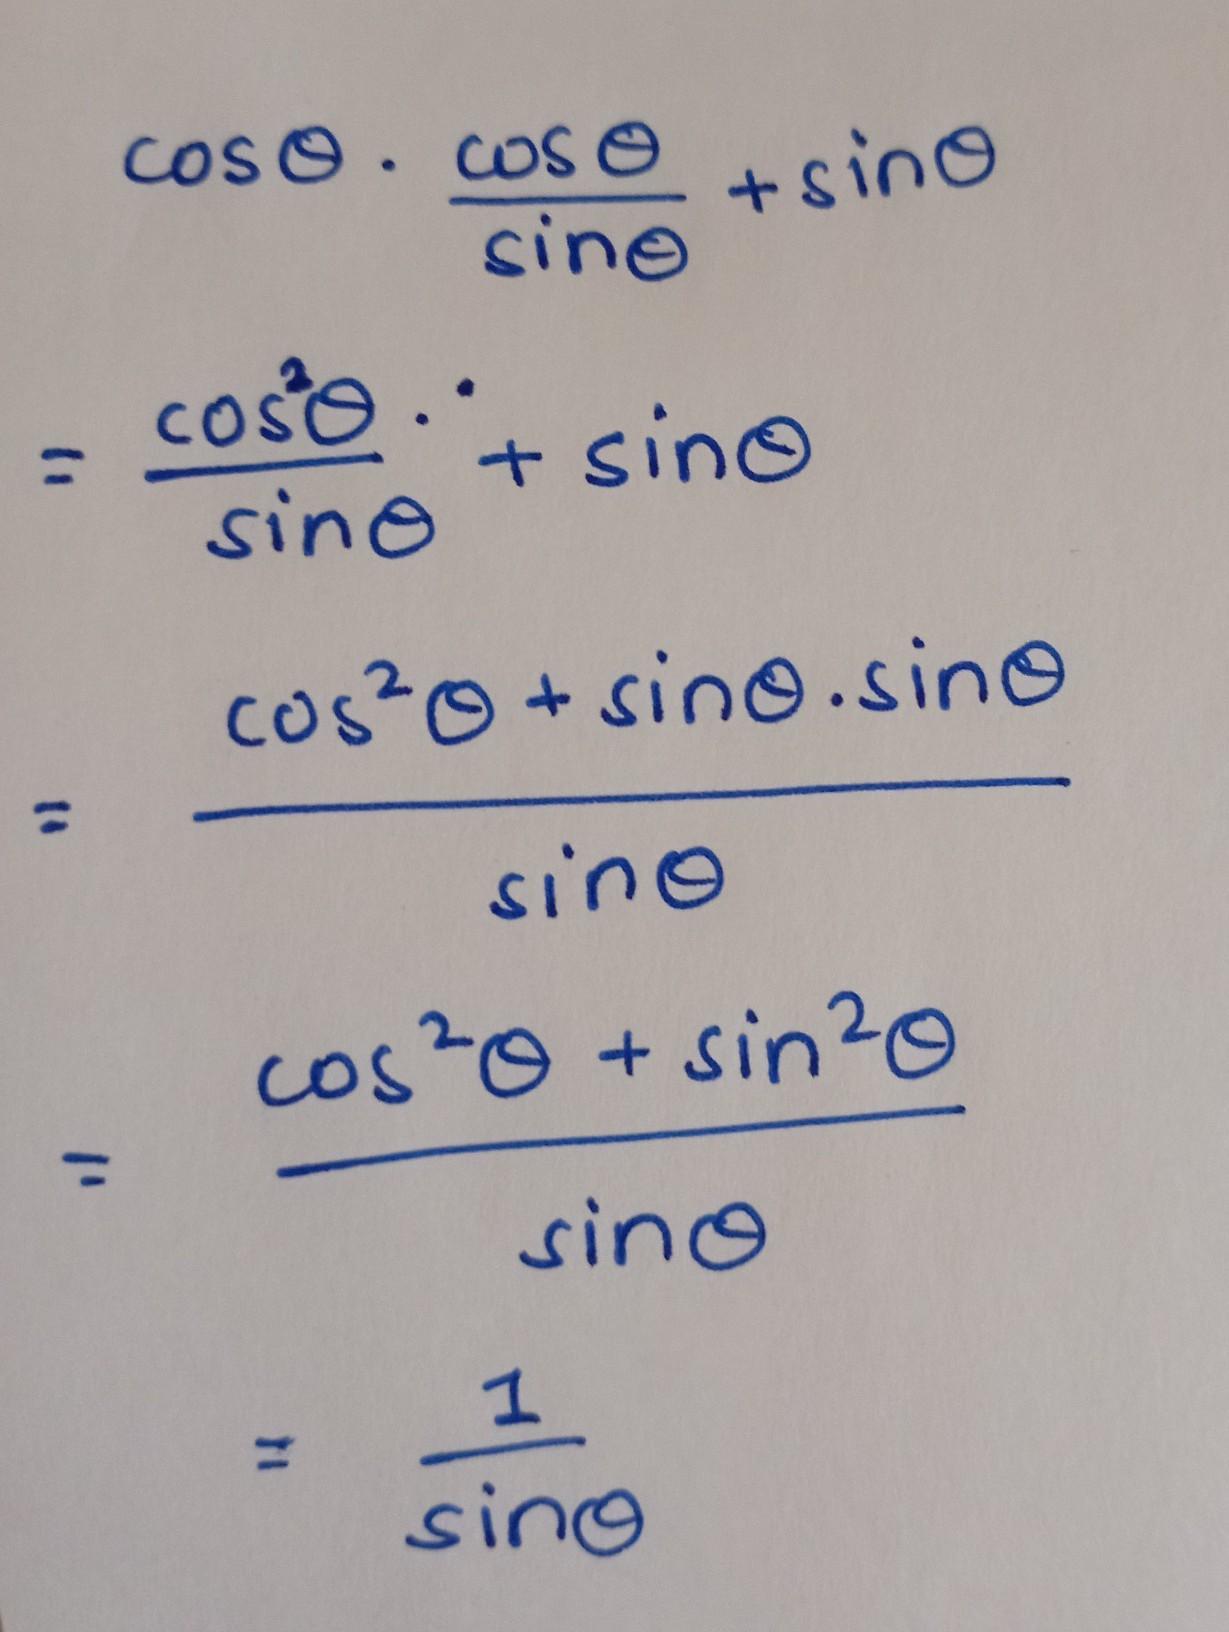 cosθ · cosθ/sinθ + sinθ
= cos²θ/sinθ + sinθ
= (cos²θ + sinθ.sinθ)/sinθ
= (cos²θ + sin²θ)/sinθ
= 1/sinθ